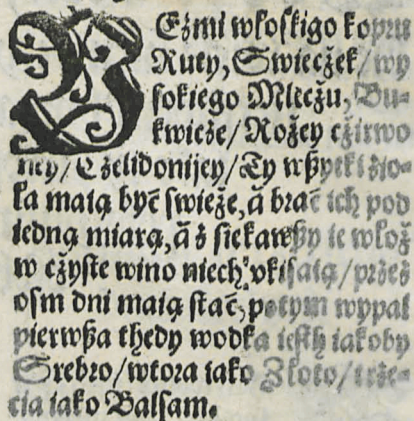 BEżmi włoſkigo kopru
Ruty, Swiecżek/ wy
ſokiego Mleczu, Bu-
kwicże/ Rożey cżirwo
ney/ Cżelidonijey/ Ty wßytki zio-
ła maią być ſwieże, á brać ich pod
iedną miarą, á ż ſiekawßy ie włoż
w cżyſte wino niech vkiſaią/ przeż
oſm dni maią ſtać, potym wypal
pierwßa thedy wodka ieſth iakoby
Srebro/ wtora iako Złoto/ trże-
cia iako Balſam.